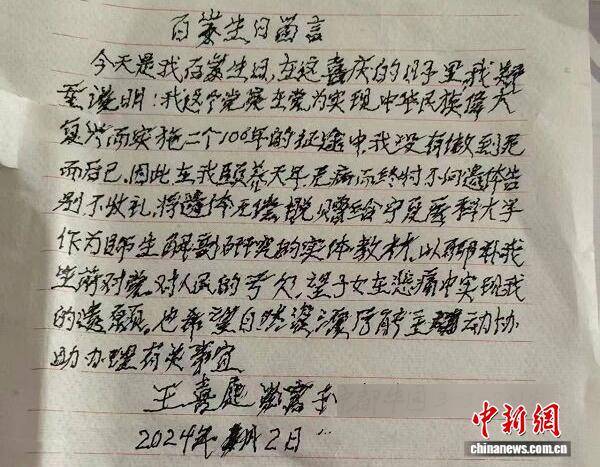 百岁生日留言
今天是我百岁生日,在这喜庆的日子里,我郑
重说明:我这个党员在党为实现中华民族偉大
复兴而实施二个100年的征途中我没有做到死
而后已,因此在我頣养天年无病而终时不问遗体告
别不收礼,将遗体无偿捐赠给宁夏医科大学
作为师生解剖研究的实体教材,以弥补我
生前对党对人民的亏欠,望子女在悲痛中实现我
的遗愿。也希望自然资源厅能主动协
助办理有关事宜
王喜庭
2024年 月2日
中新网
chinanews.com.cn